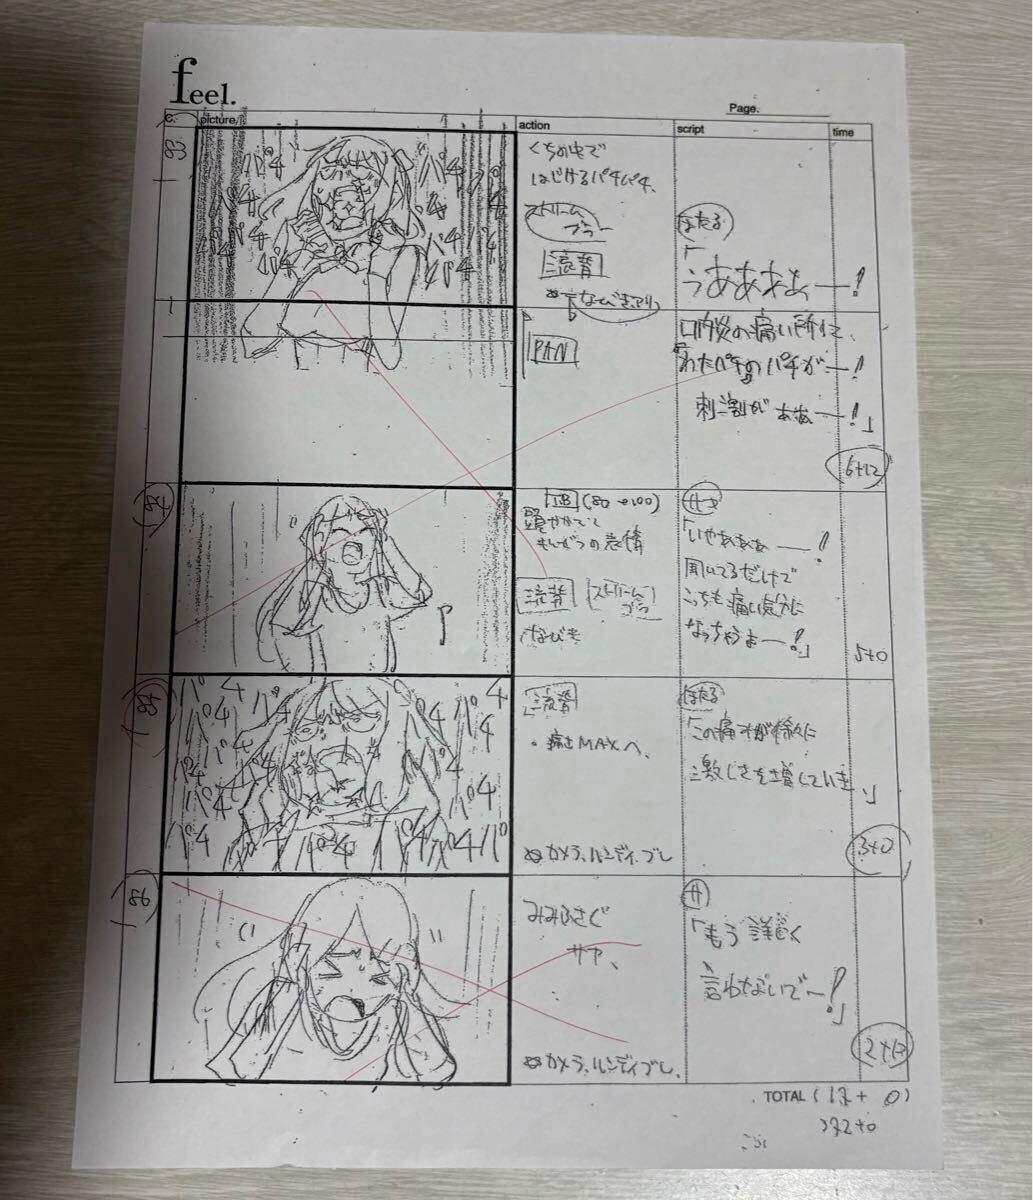 feel.
Page.
C. picture action script time
83
パチ パチ パチ パチ
くちの中で
はじけるパチパチ、
ストリーム
ブラー
流背
なびきアリ
ほたる
「
うあああぁー!
PAN
口内炎の痛い所に、
わたパチのパチがー!
刺激がぁぁー!」
6+12
84
T.B (80→100)
頭かかえて
もんぜつの表情
流背
ストリーム
ブラー
なびき
サヤ
「いやぁぁぁー!
聞いてるだけで
こっちも痛い気分に
なっちゃうよー!」
5+0
85
パチ パチ パチ パチ
流背
・痛さMAXへ、
※カメラ、ハンディ、ブレ
ほたる
「この痛みが徐々に
激しさを増していき、」
3+0
86
みみふさぐ
サヤ、
※カメラ、ハンディブレ、
サ
「もう詳しく
言わないでー!」
2+12
TOTAL ( 17 + 0 )